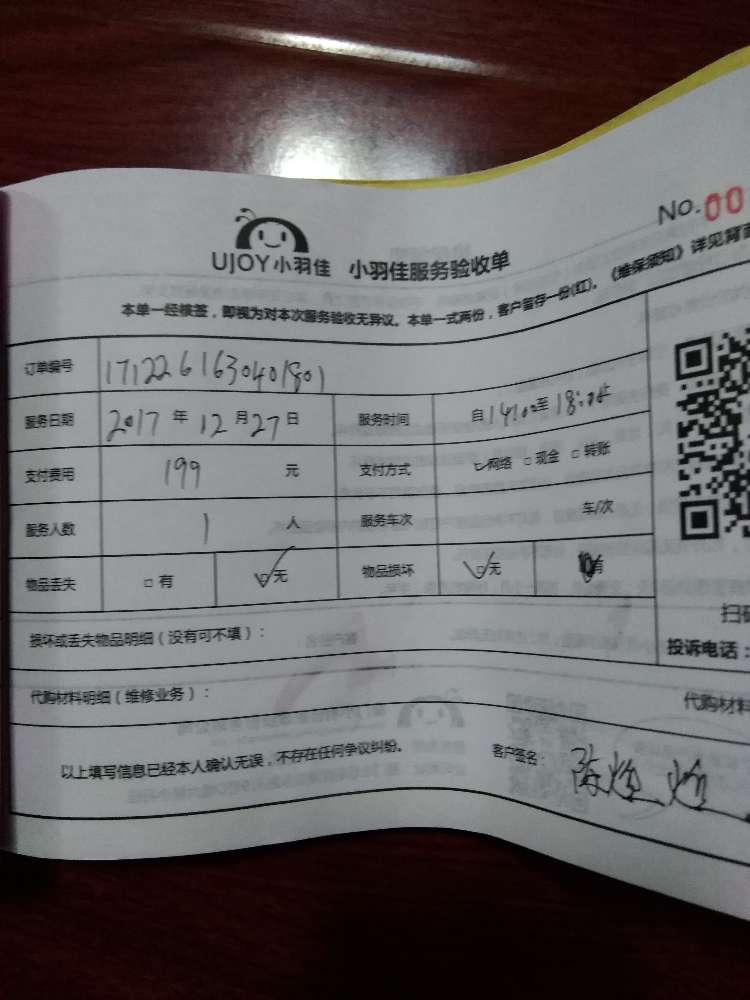 No.00
UJOY小羽佳 小羽佳服务验收单
本单一经核签，即视为对本次服务验收无异议。本单一式两份，客户留存一份(红)。《维保须知》详见背面
订单编号 1712261630401801
服务日期 2017 年 12 月 27 日 服务时间 自 14:00 至 18:00
支付费用 199 元 支付方式 □网络 □现金 □转账
服务人数 1 人 服务车次 车/次
物品丢失 □有 □无 物品损坏 □无 有
损坏或丢失物品明细（没有可不填）：
扫码
投诉电话：
代购材料明细（维修业务）： 代购材料
以上填写信息已经本人确认无误，不存在任何争议纠纷。 客户签名：陈